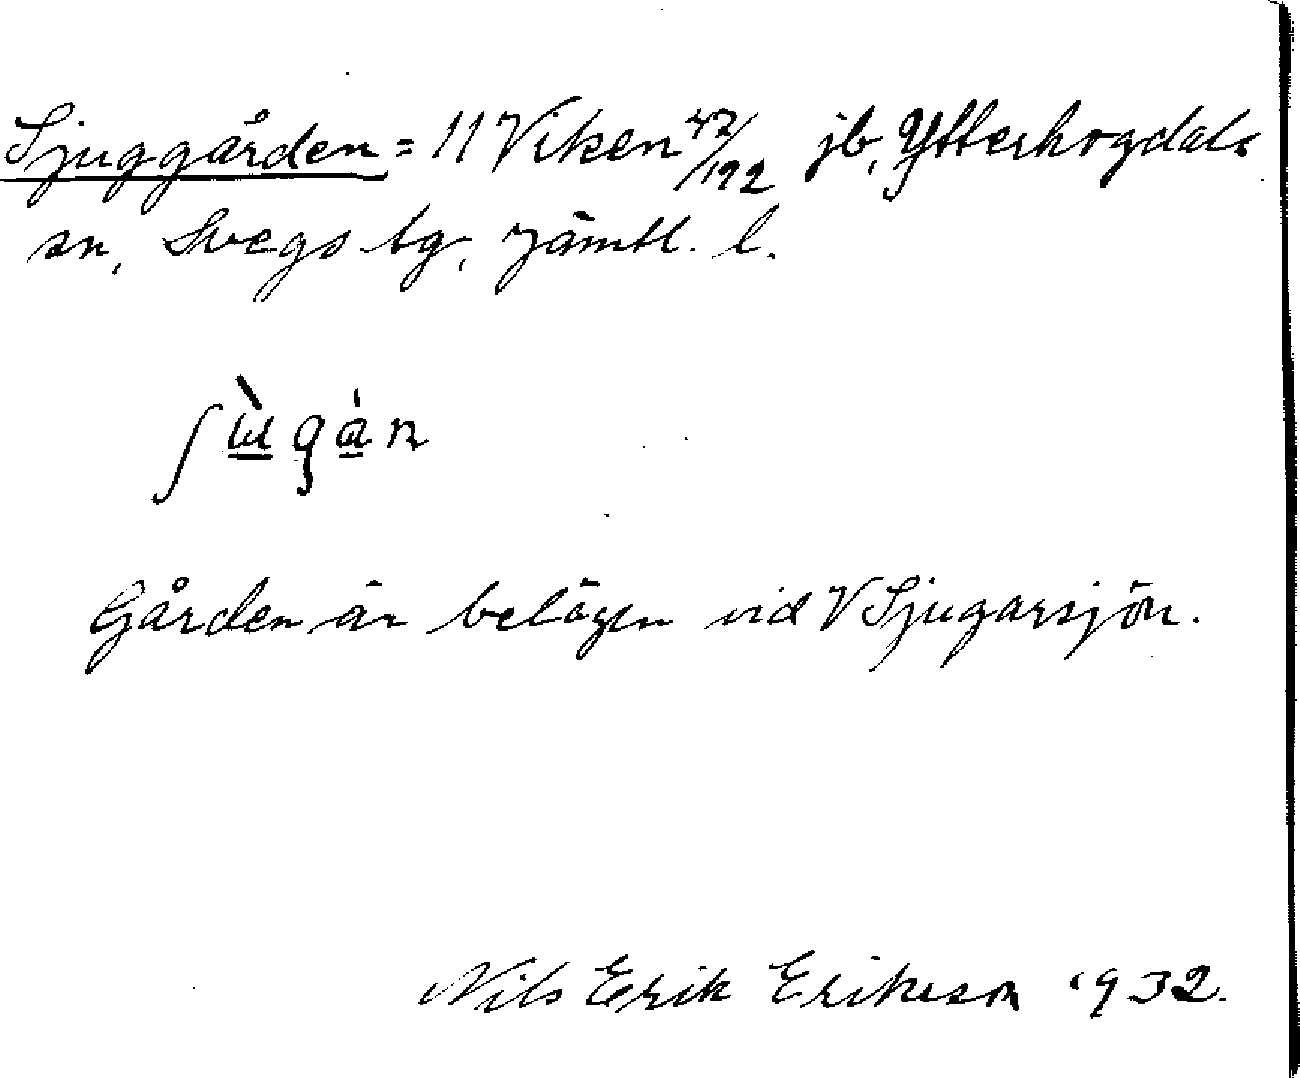 Sjuggården = 11 Viken 47/192 jb, Ytterhogdals
sn, Svegs tg, Jämtl. l.
ʃɯ̲̀ga̲̍n
Gården är belägen vid V Sjugarsjön.
Nils Erik Erikeson 1932.